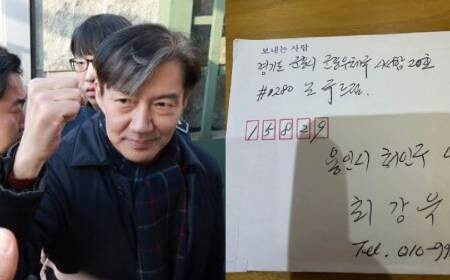 보내는 사람
경기도 군포시 군포우체국 사서함 20호
#0280 조 국 드림.
15829
용인시 처인구
최 강 욱
Tel. 010-99